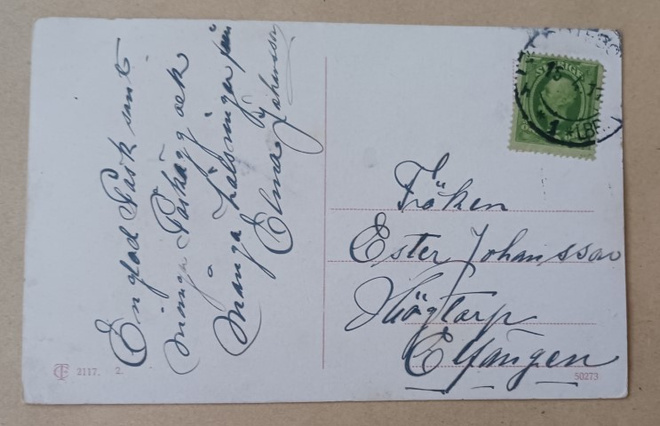 En glad Påsk samt
många Påskägg och
många hälsningar från
Elma Johansson
SVERIGE
1
Fröken
Ester Johansson
Högtorp
Elfängen
2117. 2.
50273